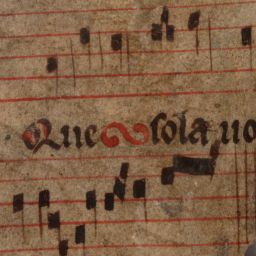 Que sola uo